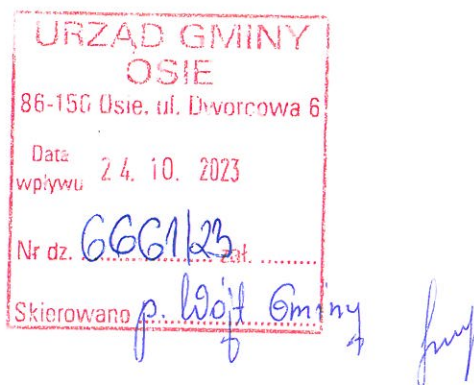 URZĄD GMINY
OSIE
86-150 Osie, ul. Dworcowa 6
Data
wpływu 24. 10. 2023
Nr dz. 6661/23 zał. ..........
Skierowano p. Wójt Gminy